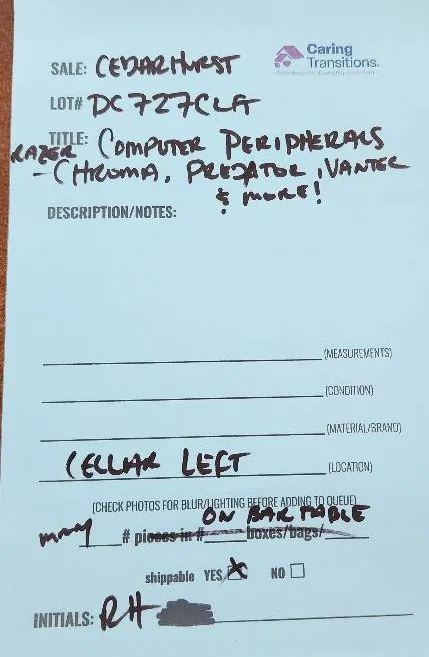 Caring
Transitions.
SALE: CEDARHURST
LOT# DC727CLA
TITLE: RAZER COMPUTER PERIPHERALS
- CHROMA, PREDATOR, VANTEC
& MORE!
DESCRIPTION/NOTES:
(MEASUREMENTS)
(CONDITION)
(MATERIAL/BRAND)
CELLAR LEFT (LOCATION)
(CHECK PHOTOS FOR BLUR/LIGHTING BEFORE ADDING TO QUEUE)
ON BAR TABLE
many # pieces in # boxes/bags/
shippable YES NO
INITIALS: RH